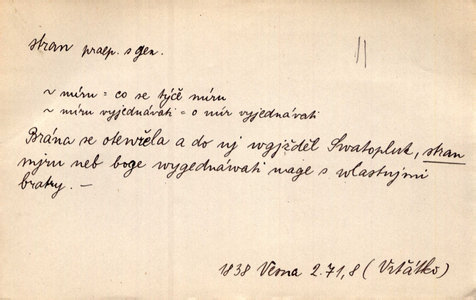 stran praep. s gen. ||
~ míru = co se týče míru
~ míru vyjednávati = o mír vyjednávati
Brána se otewřela a do nj wgjžděl Swatopluk, stran
mjru neb boge wygednáwati mage s wlastnjmi
bratry. —
1838 Vesna 2.71,8 (Vrťátko)